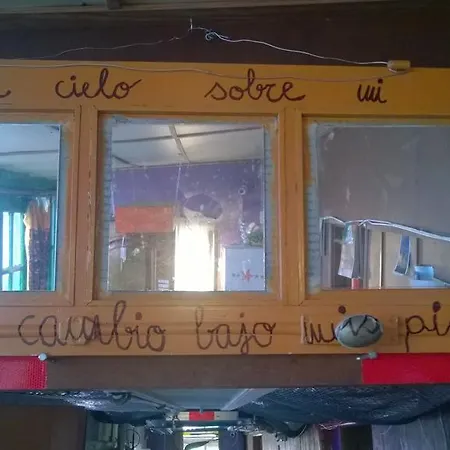 cielo sobre mi
cambio bajo mis pi